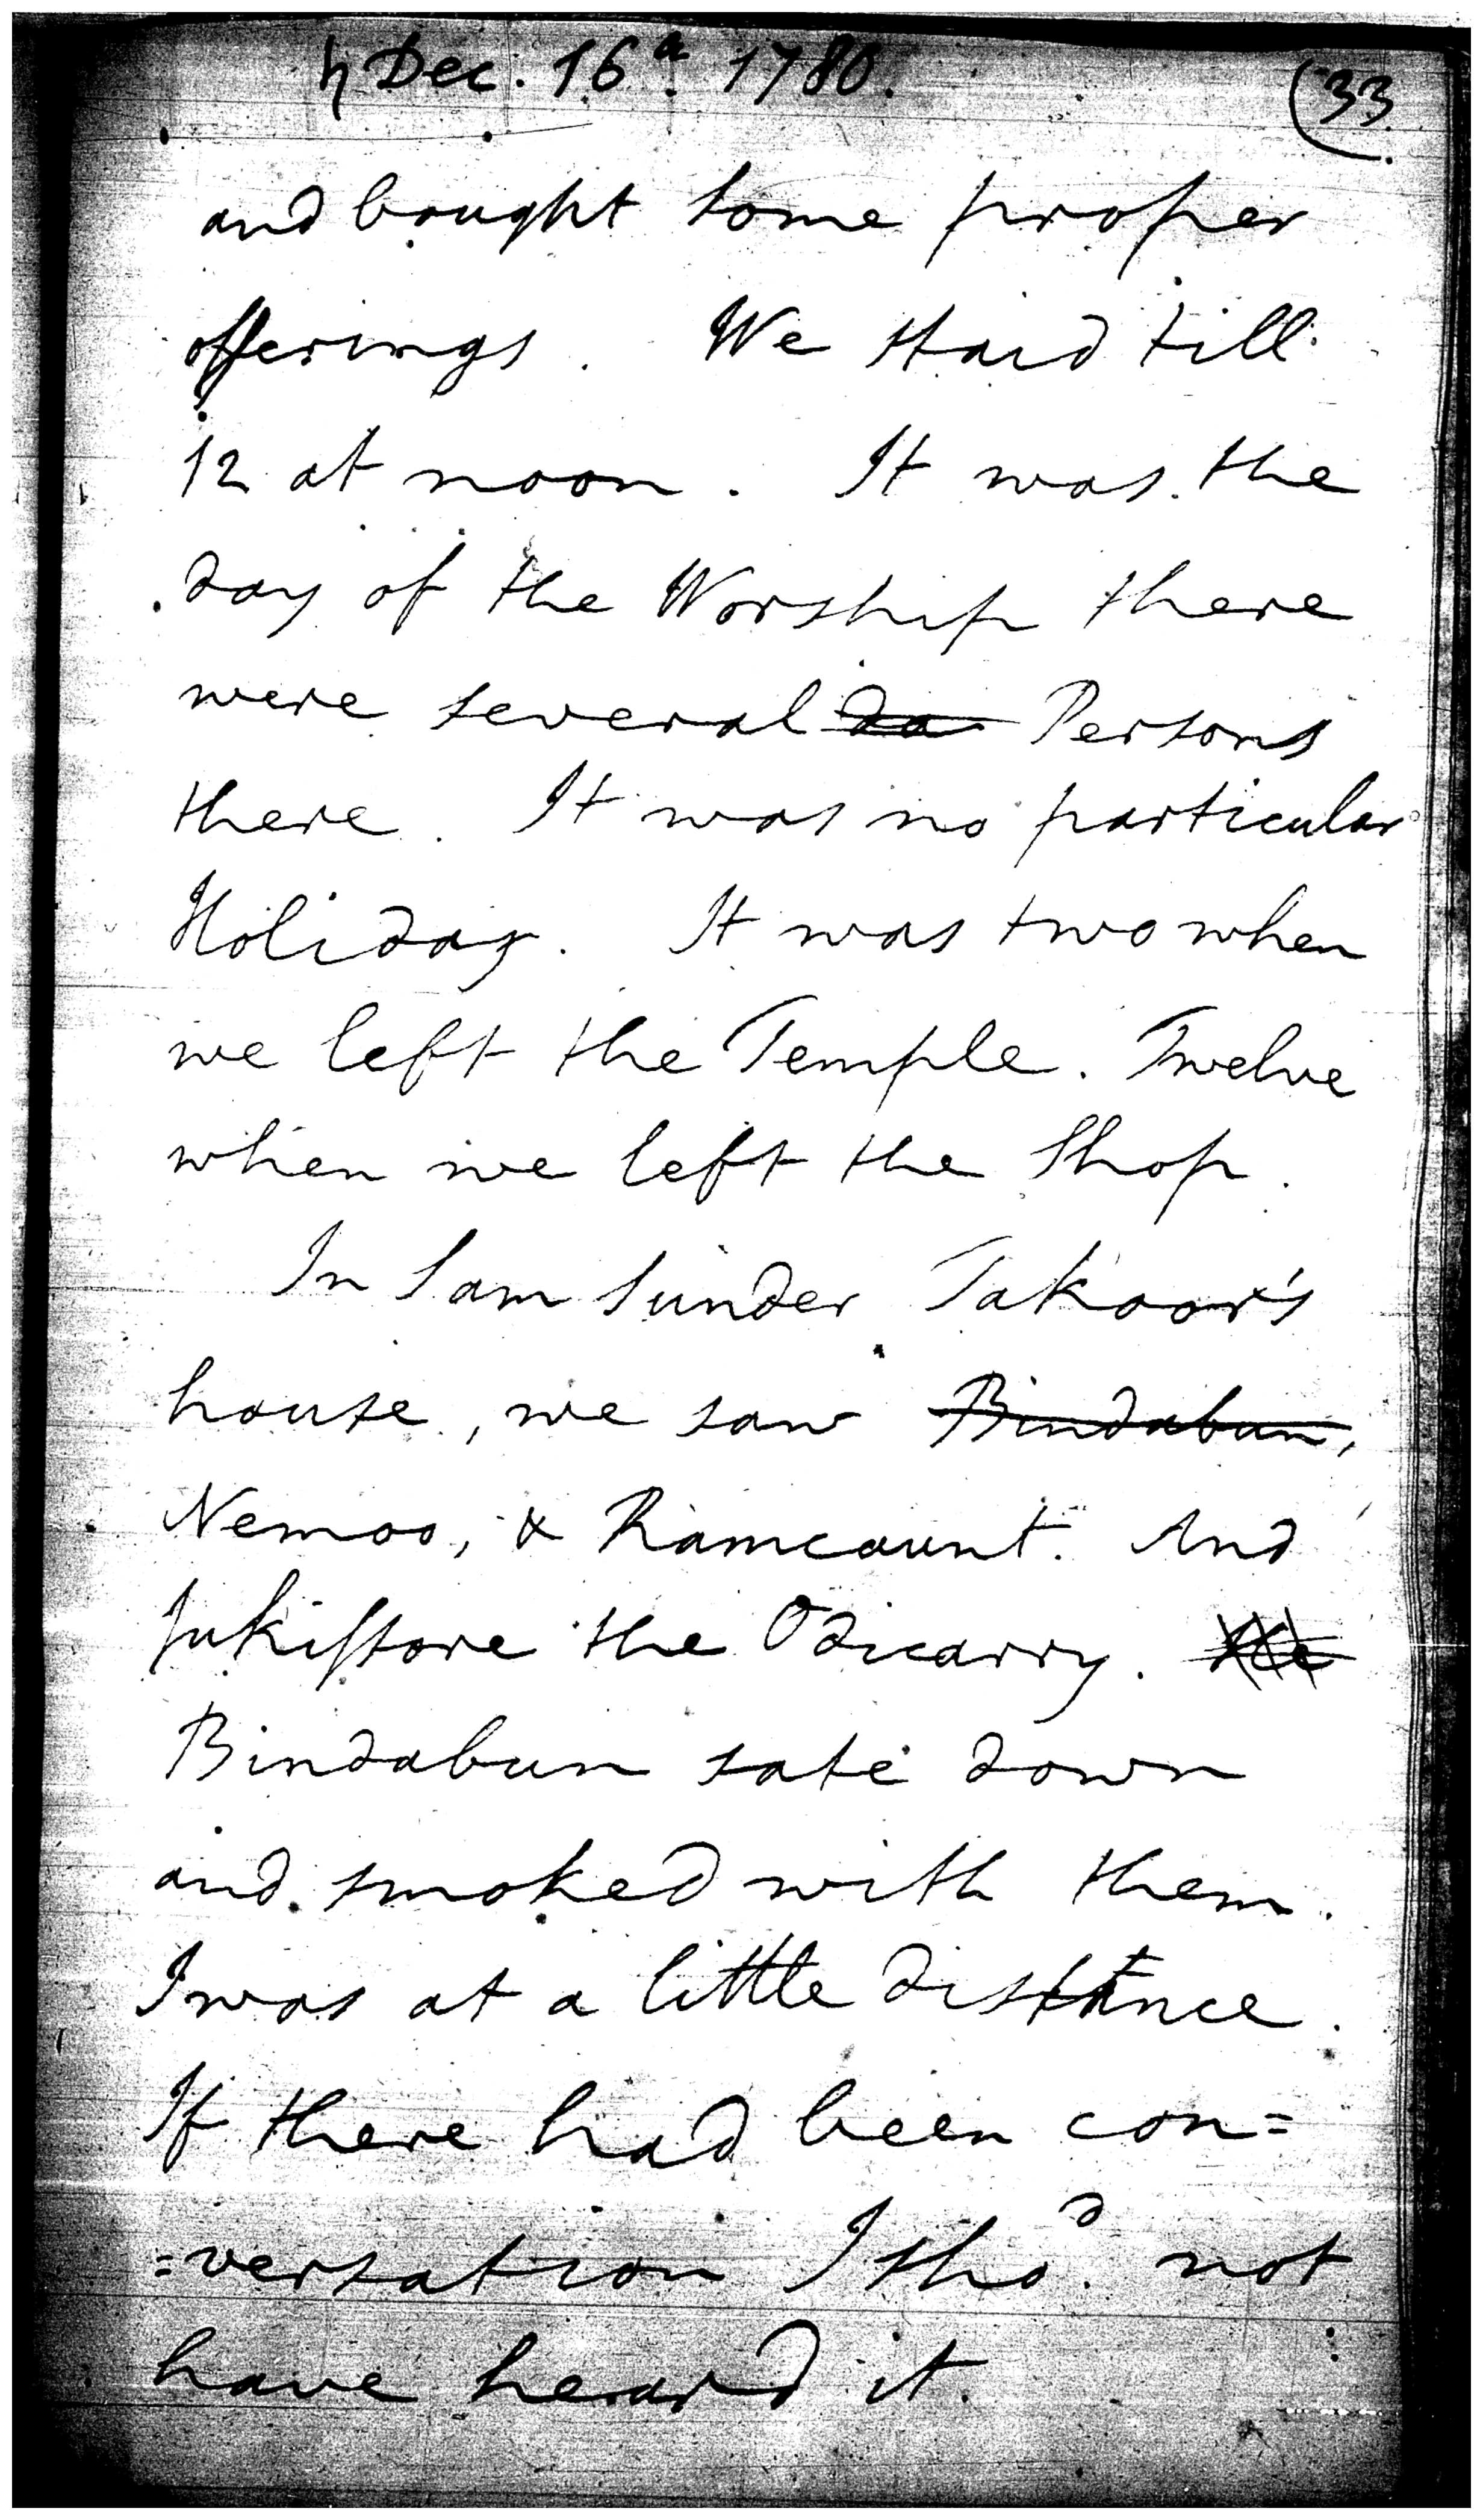 ♄ Dec. 16th. 1780. (33
and bought some proper
offerings. We staid till
12 at noon. It was the
day of the Worship there
were several da Persons
there. It was no particular
Holiday. It was two when
we left the Temple. Twelve
when we left the Shop.
In Sam Sunder Takoor's
house, we saw Bindabun,
Nemoo, & Ramcaunt. And
Jukissore the Odicarry.
Bindabun sate down
and smoked with them.
I was at a little distance.
If there had been con=
=versation I sho.d not
have heard it.